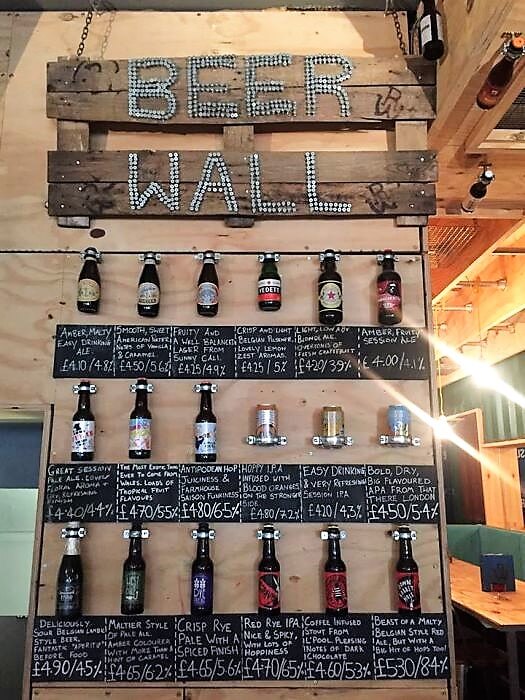 BEER
WALL
VEDETT
AMBER, MALTY
EASY DRINKING
ALE.
£4.10/4.8%
SMOOTH, SWEET
AMERICAN
NOTES OF VANILLA
& CARAMEL.
£4.50/5.6%
FRUITY AND
A WELL BALANCED
LAGER FROM
SUNNY CALI.
£4.25/4.9%
CRISP AND LIGHT
BELGIAN PILSENER.
LOVELY LEMON
ZEST AROMAS.
£4.25/5%
LIGHT, LOW ABV
BLONDE ALE.
OF
FRESH GRAPEFRUIT
£4.20/3.9%
AMBER, FRUITY
SESSION ALE
£4.00/4.1%
GREAT SESSION
PALE ALE. LOVELY
FLORAL AROMA +
REFRESHING
FINISH
£4.40/4.4%
THE MOST EXOTIC THING
EVER TO COME FROM
WALES. LOADS OF
TROPICAL FRUIT
FLAVOURS
£4.70/5.5%
ANTIPODEAN HOP
JUICINESS &
FARMHOUSE
SAISON FUNKINESS
£4.80/6.5%
HOPPY I.P.A
INFUSED WITH
BLOOD ORANGES
ON THE STRONGER
SIDE.
£4.80/7.2%
EASY DRINKING
& VERY REFRESHING
SESSION IPA
£4.20/4.3%
BOLD, DRY,
BIG FLAVOURED
APA FROM THAT
THERE LONDON
£4.50/5.4%
DELICIOUSLY
SOUR BELGIAN LAMBIC
STYLE BEER.
FANTASTIC "APERITIF"
BEFORE FOOD
£4.90/4.5%
MALTIER STYLE
OF PALE ALE.
AMBER COLOURED
WITH MORE THAN A
HINT OF CARAMEL
£4.65/6.2%
CRISP RYE
PALE WITH A
SPICED FINISH
£4.65/5.6%
RED RYE IPA.
NICE & SPICY,
WITH LOTS OF
HOPPINESS
£4.70/6.5%
COFFEE INFUSED
STOUT FROM
L'POOL. PLEASING
NOTES OF DARK
CHOCOLATE
£4.60/5.3%
BEAST OF A MALTY
BELGIAN STYLE RED
ALE, BUT WITH A
BIG HIT OF HOPS TOO!
£5.30/8.4%